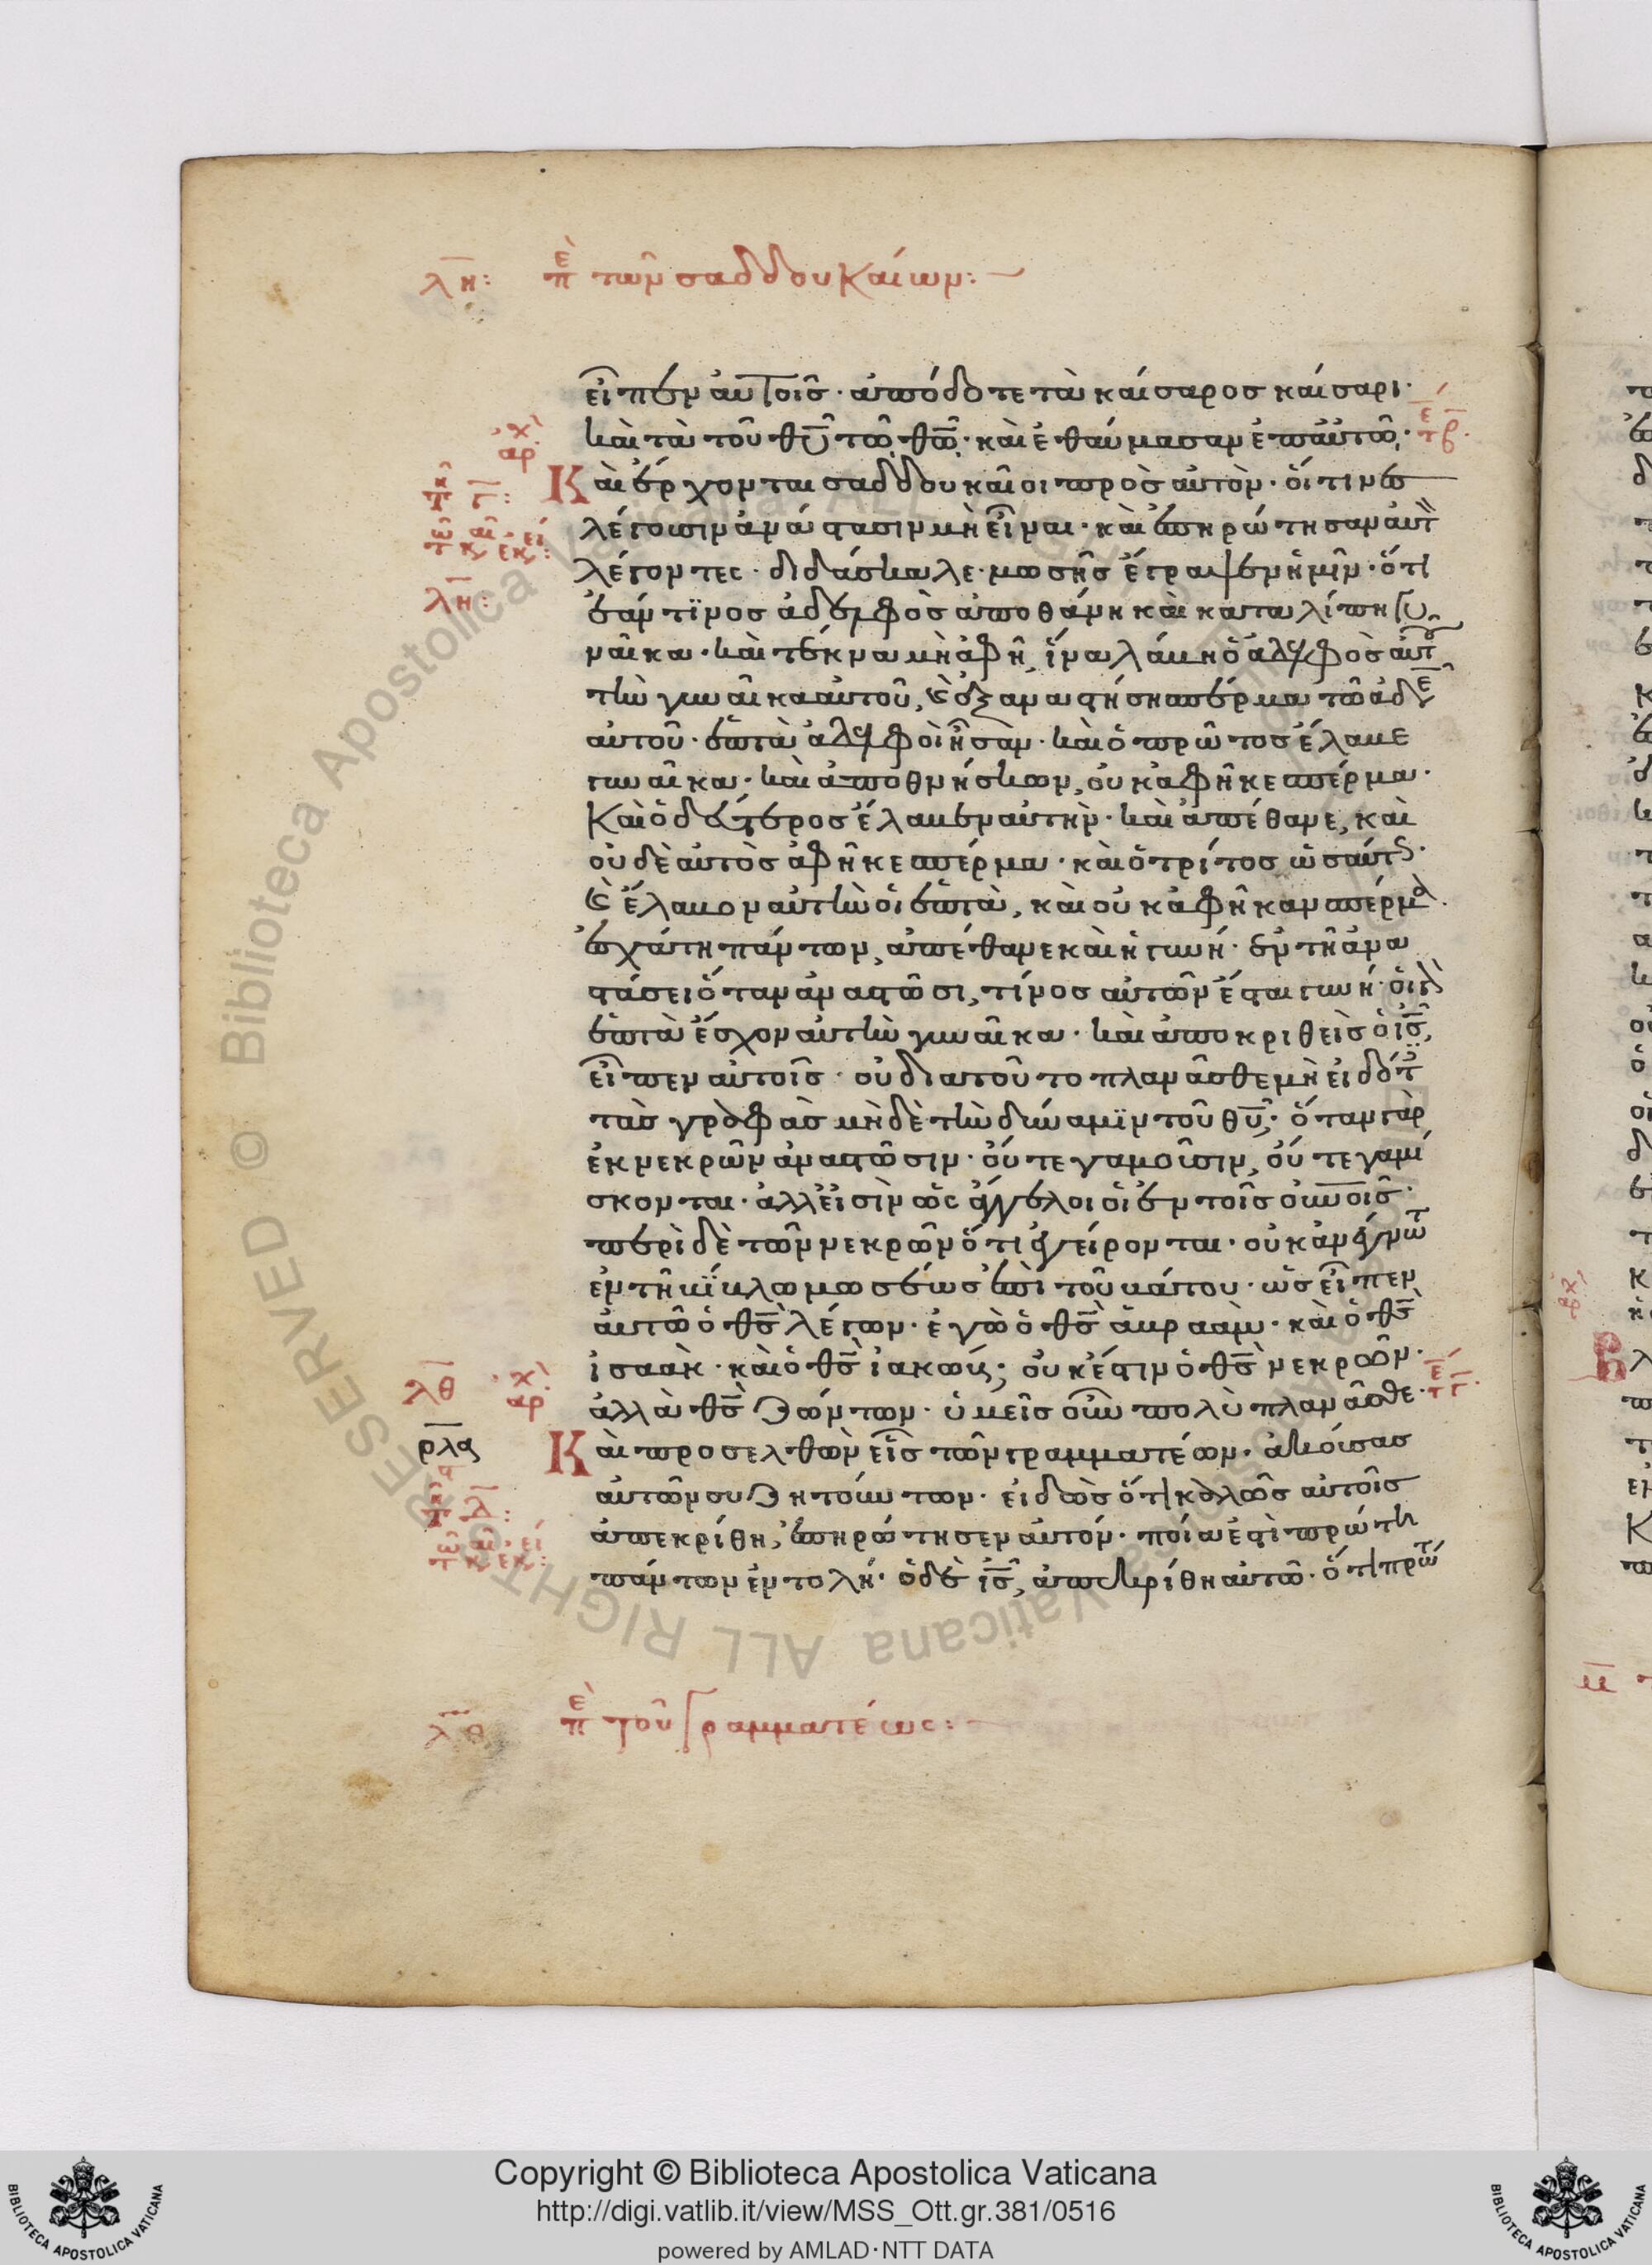 λη: περὶ τῶν σαδδουκαίων:
εἶπεν αὐτοῖς· ἀπόδοτε τὰ καίσαρος καίσαρι·
καὶ τὰ τοῦ θυ τῶ θω· καὶ ἐθαύμασαν ἐπαὐτῶ·
Καὶ ἔρχονται σαδδουκαῖοι πρὸς αὐτὸν· οἵτινες
λέγουσιν ἀνάστασιν μὴ εἶναι· καὶ ἐπηρώτησαν αὐτ
λέγοντες· διδάσκαλε· μωσῆς ἔγραψεν ἡμῖν· ὅτι
ἐάν τινος ἀδελφὸς ἀποθάνη καὶ καταλίπη γυ
ναῖκα· καὶ τέκνα μὴ ἀφῆ, ἵνα λάβη ὁ ἀδελφὸς αὐτοῦ
τὴν γυναῖκα αὐτοῦ, καὶ ἐξαναστήση σπέρμα τῶ ἀδε
αὐτοῦ· ἑπτὰ ἀδελφοὶ ἦσαν· καὶ ὁ πρῶτος ἔλαβε
γυναῖκα· καὶ ἀποθνήσκων, οὐκ ἀφῆκε σπέρμα·
Καὶ ὁ δεύτερος ἔλαβεν αὐτὴν· καὶ ἀπέθανε, καὶ
οὐδὲ αὐτὸς ἀφῆκε σπέρμα· καὶ ὁ τρίτος ὡσαύτως·
καὶ ἔλαβον αὐτὴν οἱ ἑπτὰ, καὶ οὐκ ἀφῆκαν σπέρμα.
ἐσχάτη πάντων, ἀπέθανε καὶ ἡ γυνή· ἐν τῆ ἀνα
στάσει ὅταν ἀναστῶσι, τίνος αὐτῶν ἔσται γυνή· οἱ γὰρ
ἑπτὰ ἔσχον αὐτὴν γυναῖκα· καὶ ἀποκριθεὶς ὁ ις,
εἶπεν αὐτοῖς· οὐ διατοῦτο πλανᾶσθε μὴ εἰδότ
τὰς γραφὰς μὴδὲ τὴν δύναμιν τοῦ θυ; ὅταν γὰρ
ἐκ νεκρῶν ἀναστῶσιν· οὔτε γαμοῦσιν, οὔτε γαμί
σκονται· ἀλλεἰσὶν ὡς ἄγγελοι οἱ ἐν τοῖς οὐνοις·
περὶ δὲ τῶν νεκρῶν ὅτι ἐγείρονται· οὐκ ἀνέγνωτ
ἐν τῆ βίβλω μωσέως ἐπὶ τοῦ βάτου· ὡς εἶπεν
αὐτῶ ὁ θς λέγων· ἐγὼ ὁ θς ἀβραὰμ· καὶ ὁ θς
ἰσαὰκ· καὶ ὁ θς ἰακώβ; οὐκ ἔστιν ὁ θς νεκρῶν·
ἀλλὰ θς ζώντων· ὑμεῖς οὖν πολὺ πλανᾶσθε·
Καὶ προσελθὼν εἷς τῶν γραμματέων· ἀκούσας
αὐτῶν συζητούντων· εἰδὼς ὅτι καλῶς αὐτοῖς
ἀπεκρίθη, ἐπηρώτησεν αὐτόν· ποία ἐστὶ πρώτη
πάντων ἐντολή· ὁ δὲ ις, ἀπεκρίθη αὐτῶ· ὅτι πρώτ
λθ περὶ τοῦ γραμματέως:
λη:
λθ
ρλα
Copyright © Biblioteca Apostolica Vaticana
http://digi.vatlib.it/view/MSS_Ott.gr.381/0516
powered by AMLAD·NTT DATA
BIBLIOTECA APOSTOLICA VATICANA
BIBLIOTECA APOSTOLICA VATICANA